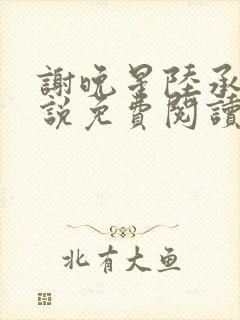 謝晚星陸承
說免費閱讀
北有大鱼